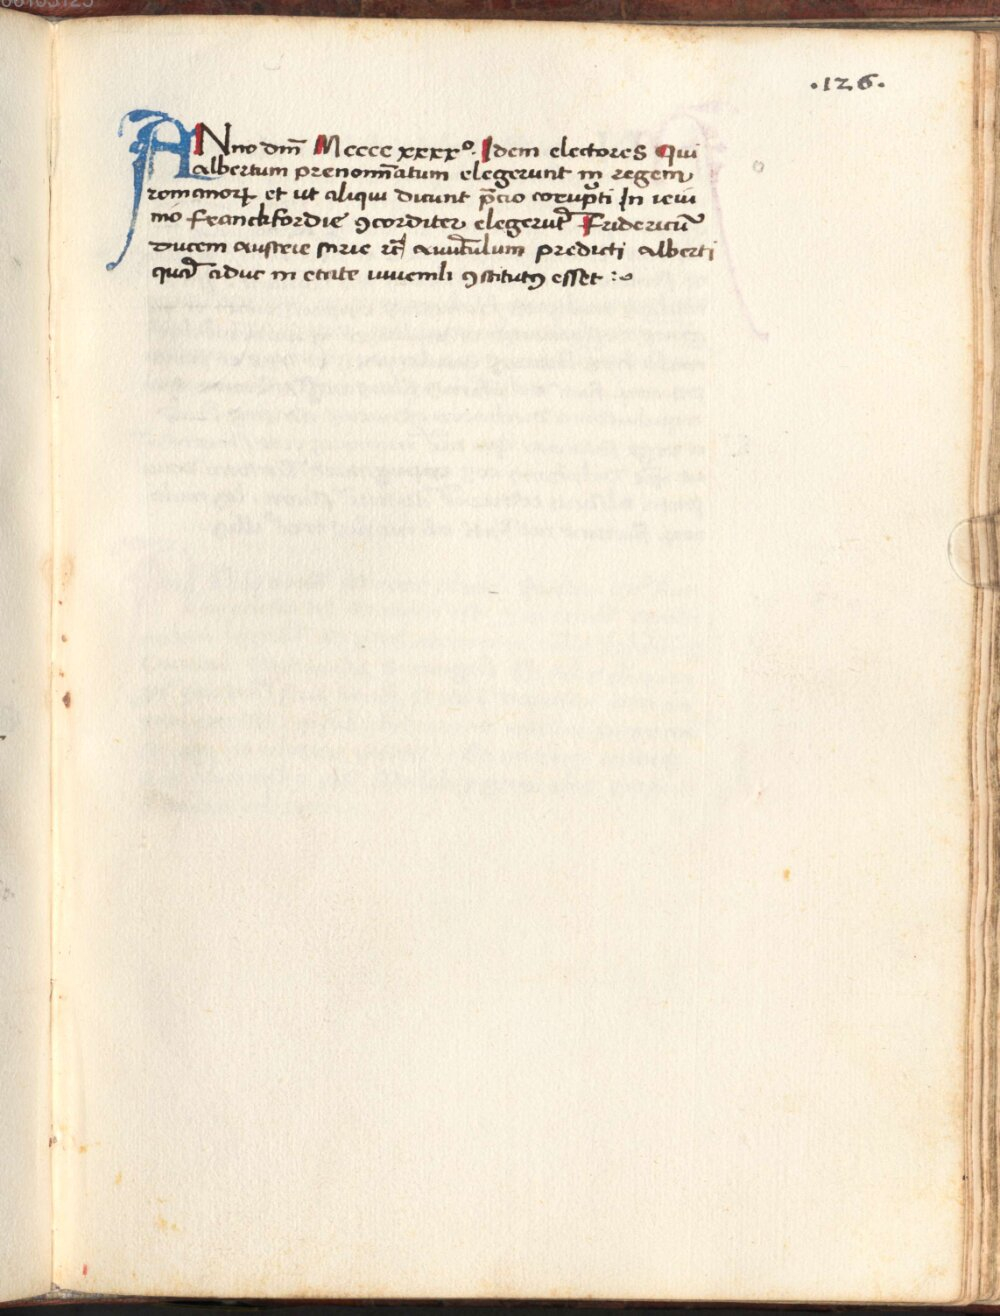 .126.
ANno dm̄ Mcccc xxxxº. Idem electores Qui
albertum prenomīatum elegerunt in regem
romanorꝝ et ut aliqui dicunt p̄cio corupti In ieiu
nio Franckfordie ꝯcorditer elegerūt Fridericū
Ducem austrie stirie avūculum predicti Alberti
aduc in etate iuvenili ꝯstitutꝰ esset :~